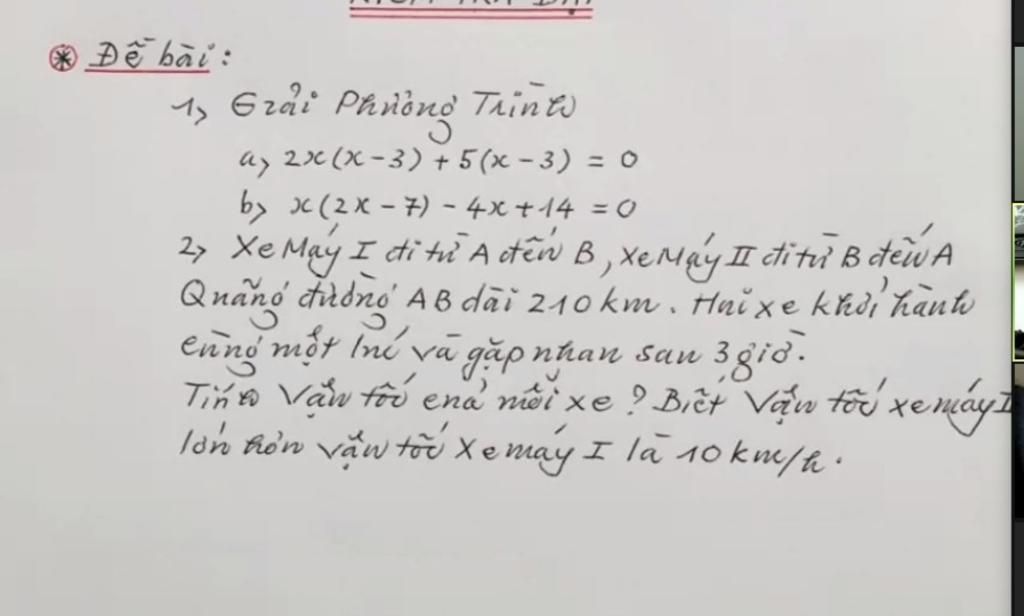 Đề bài:
1, Giải Phương Trình
a, 2x(x-3) + 5(x-3) = 0
b, x(2x-7) - 4x+14 = 0
2, Xe Máy I đi từ A đến B, Xe Máy II đi từ B đến A
Quãng đường AB dài 210 km. Hai xe khởi hành
cùng một lúc và gặp nhau sau 3 giờ.
Tính Vận tốc của mỗi xe? Biết Vận tốc xe máy II
lớn hơn vận tốc Xe máy I là 10 km/h.